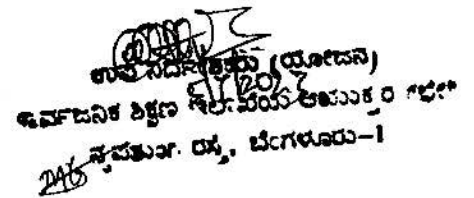 ಉಪ ನಿರ್ದೇಶಕರು (ಯೋಜನೆ)
ಸಾರ್ವಜನಿಕ ಶಿಕ್ಷಣ ಇಲಾಖೆಯ ಆಯುಕ್ತರ ಕಛೇರಿ
ನೃಪತುಂಗ ರಸ್ತೆ, ಬೆಂಗಳೂರು-1